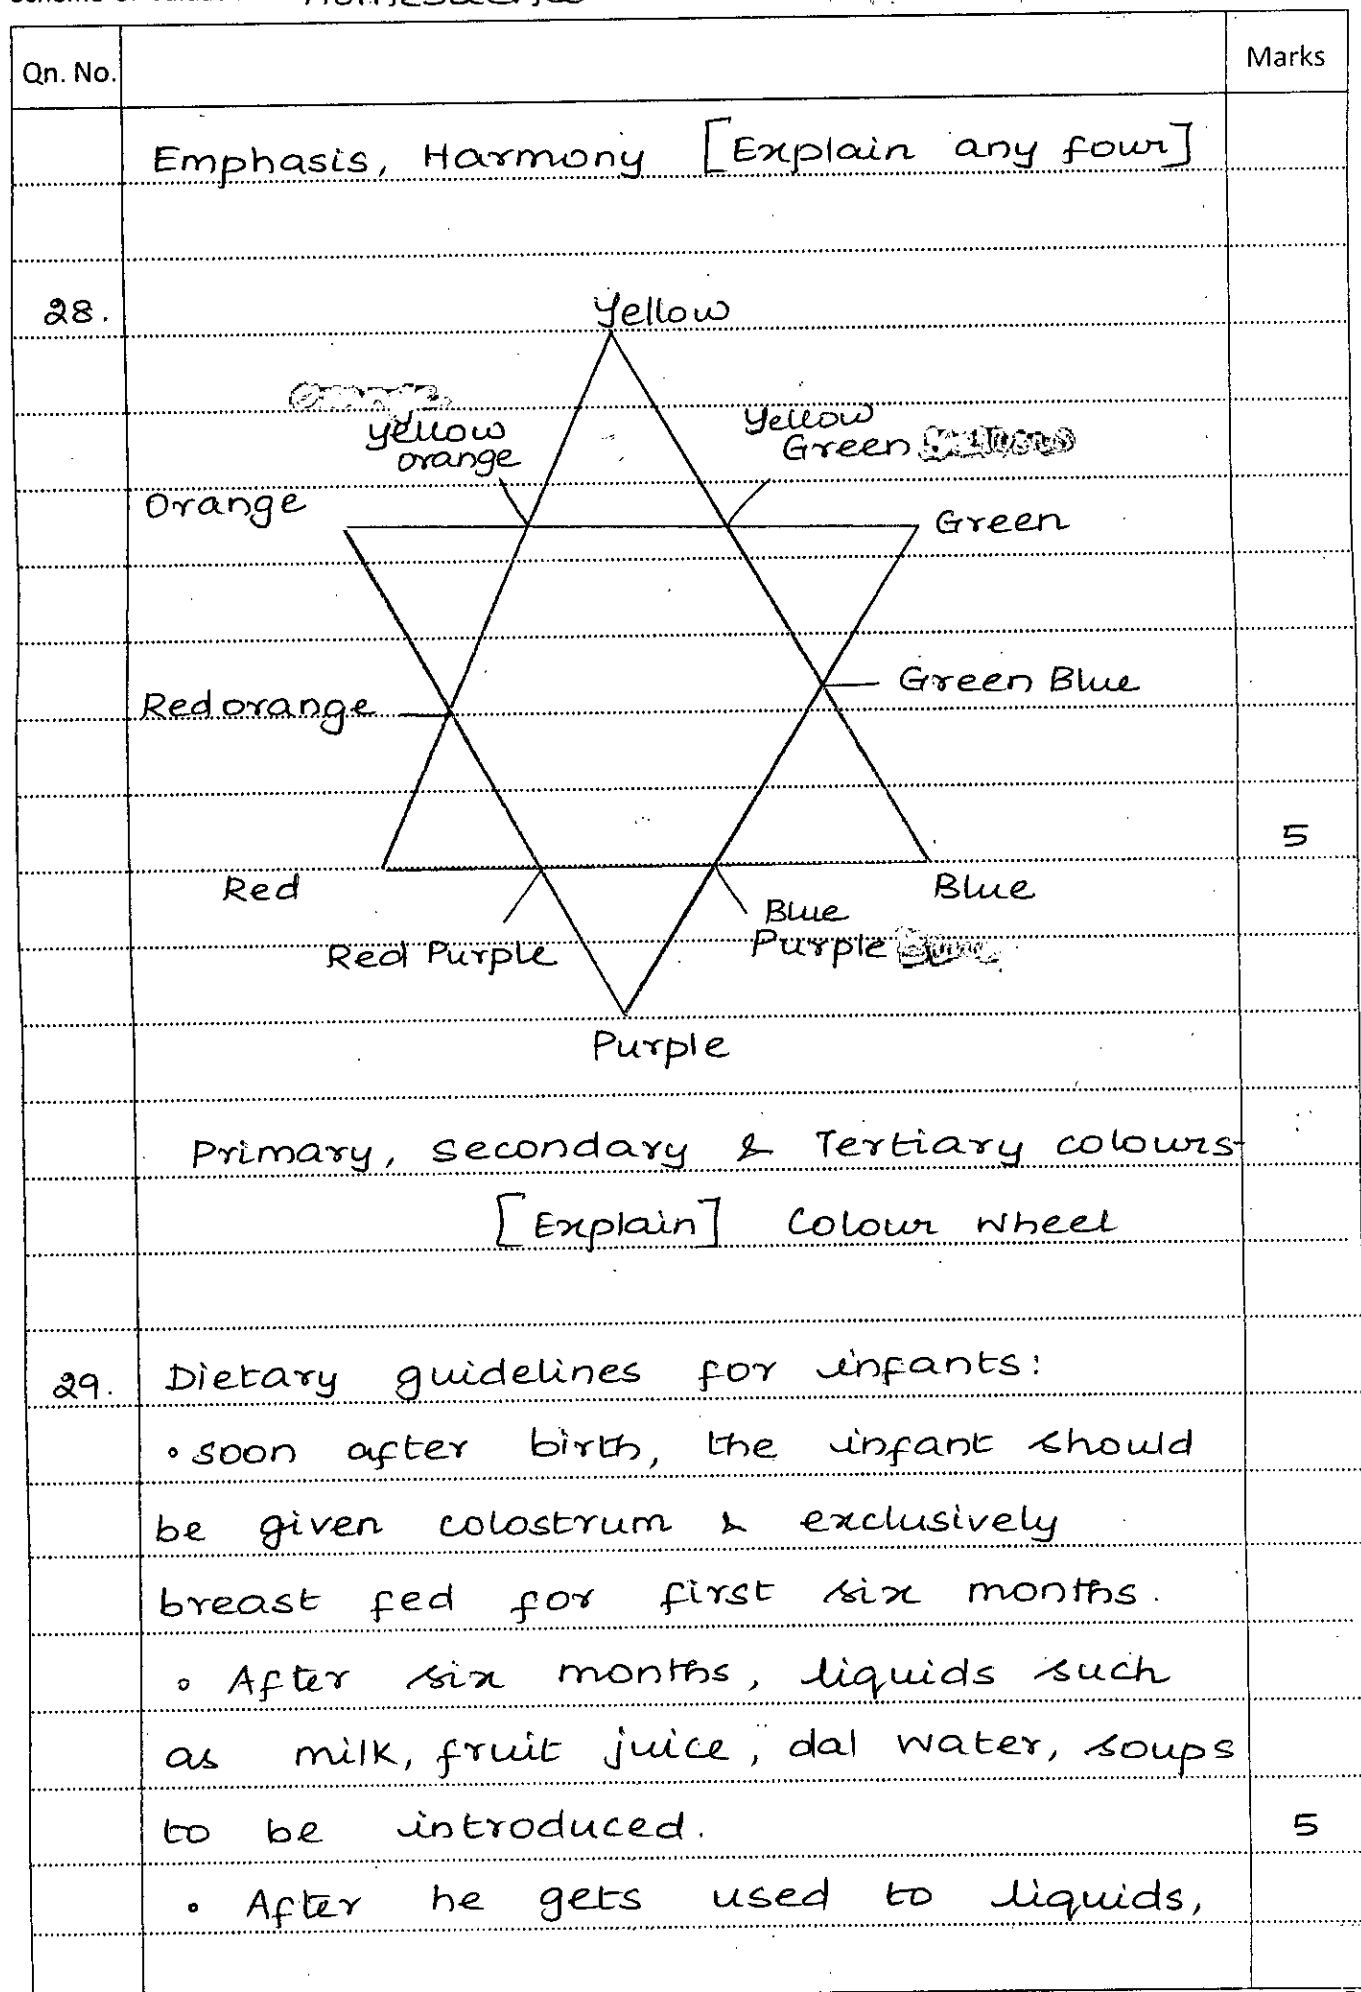 Qn. No.
Marks
Emphasis, Harmony [Explain any four]
28.
Yellow
Yellow
orange
Yellow
Green
Orange
Green
Red orange
Green Blue
5
Red
Blue
Red Purple
Blue
Purple
Purple
Primary, secondary & Tertiary colours
[Explain] Colour wheel
29. Dietary guidelines for infants:
• soon after birth, the infant should
be given colostrum & exclusively
breast fed for first six months.
• After six months, liquids such
as milk, fruit juice, dal water, soups
to be introduced. 5
• After he gets used to liquids,